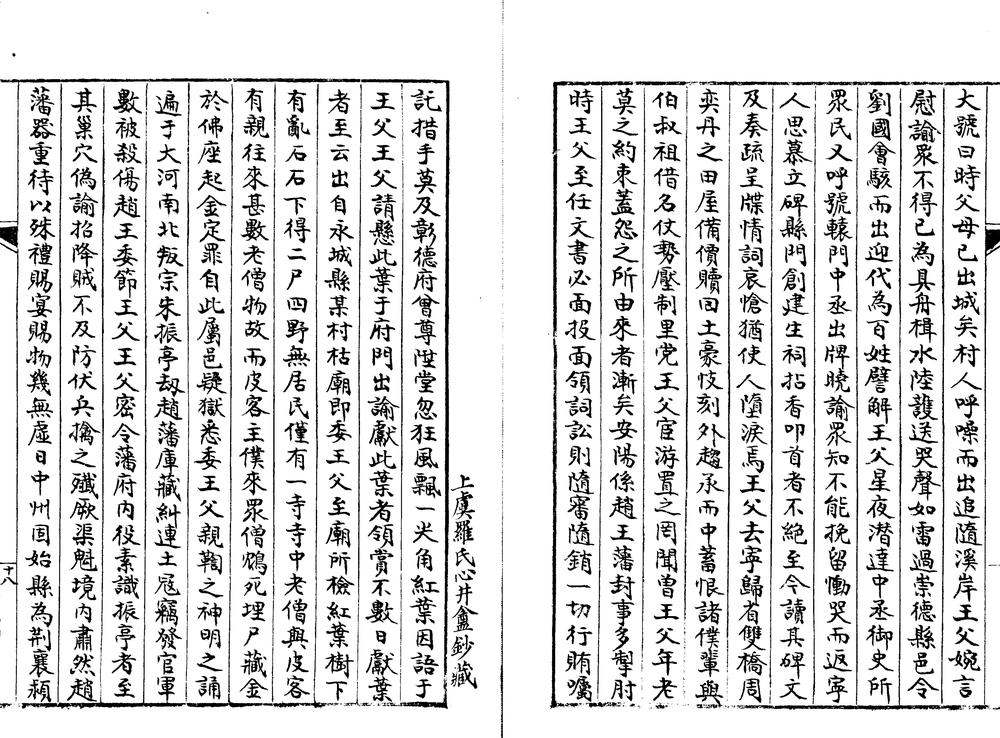 大號日時父母已出城矣村人呼噪而出追隨溪岸王父婉言
慰諭眾不得已為具舟楫水陸護送哭聲如雷過崇德縣邑令
劉國會駭而出迎代為百姓譬解王父星夜潛達中丞御史所
眾民又呼號轅門中丞出牌曉諭眾知不能挽留慟哭而返寧
人思慕立碑縣門創建生祠拈香叩首者不絕至今讀其碑文
及奏疏呈牒情詞哀愴猶使人墮淚焉王父去寧歸省雙橋周
奕丹之田屋備價贖回土豪忮刻外趨承而中蓄恨諸僕輩與
伯叔祖借名仗勢壓制里党王父宦游置之罔聞曾王父年老
莫之約束蓋怨之所由來者漸矣安陽係趙王藩封事多掣肘
時王父至任文書必面投面領詞訟則隨審隨銷一切行賄囑
託措手莫及彰德府曾尊陞堂忽狂風飄一尖角紅葉因語于
王父王父請懸此葉于府門出諭獻此葉者領賞不數日獻葉
者至云出自永城縣某村枯廟即委王父至廟所檢紅葉樹下
有亂石石下得二尸四野無居民僅有一寺寺中老僧與皮客
有親往來甚數老僧物故而皮客主僕來眾僧鴆死埋尸藏金
於佛座起金定罪自此屬邑疑獄悉委王父親鞫之神明之誦
遍于大河南北叛宗朱振亭劫趙藩庫藏糾連土寇竊發官軍
數被殺傷趙王委節王父王父密令藩府內役素識振亭者至
其巢穴偽諭招降賊不及防伏兵擒之殲厥渠魁境內肅然趙
藩器重待以殊禮賜宴賜物幾無虛日中州固始縣為荆襄潁
上虞羅氏心井盦鈔藏
十八